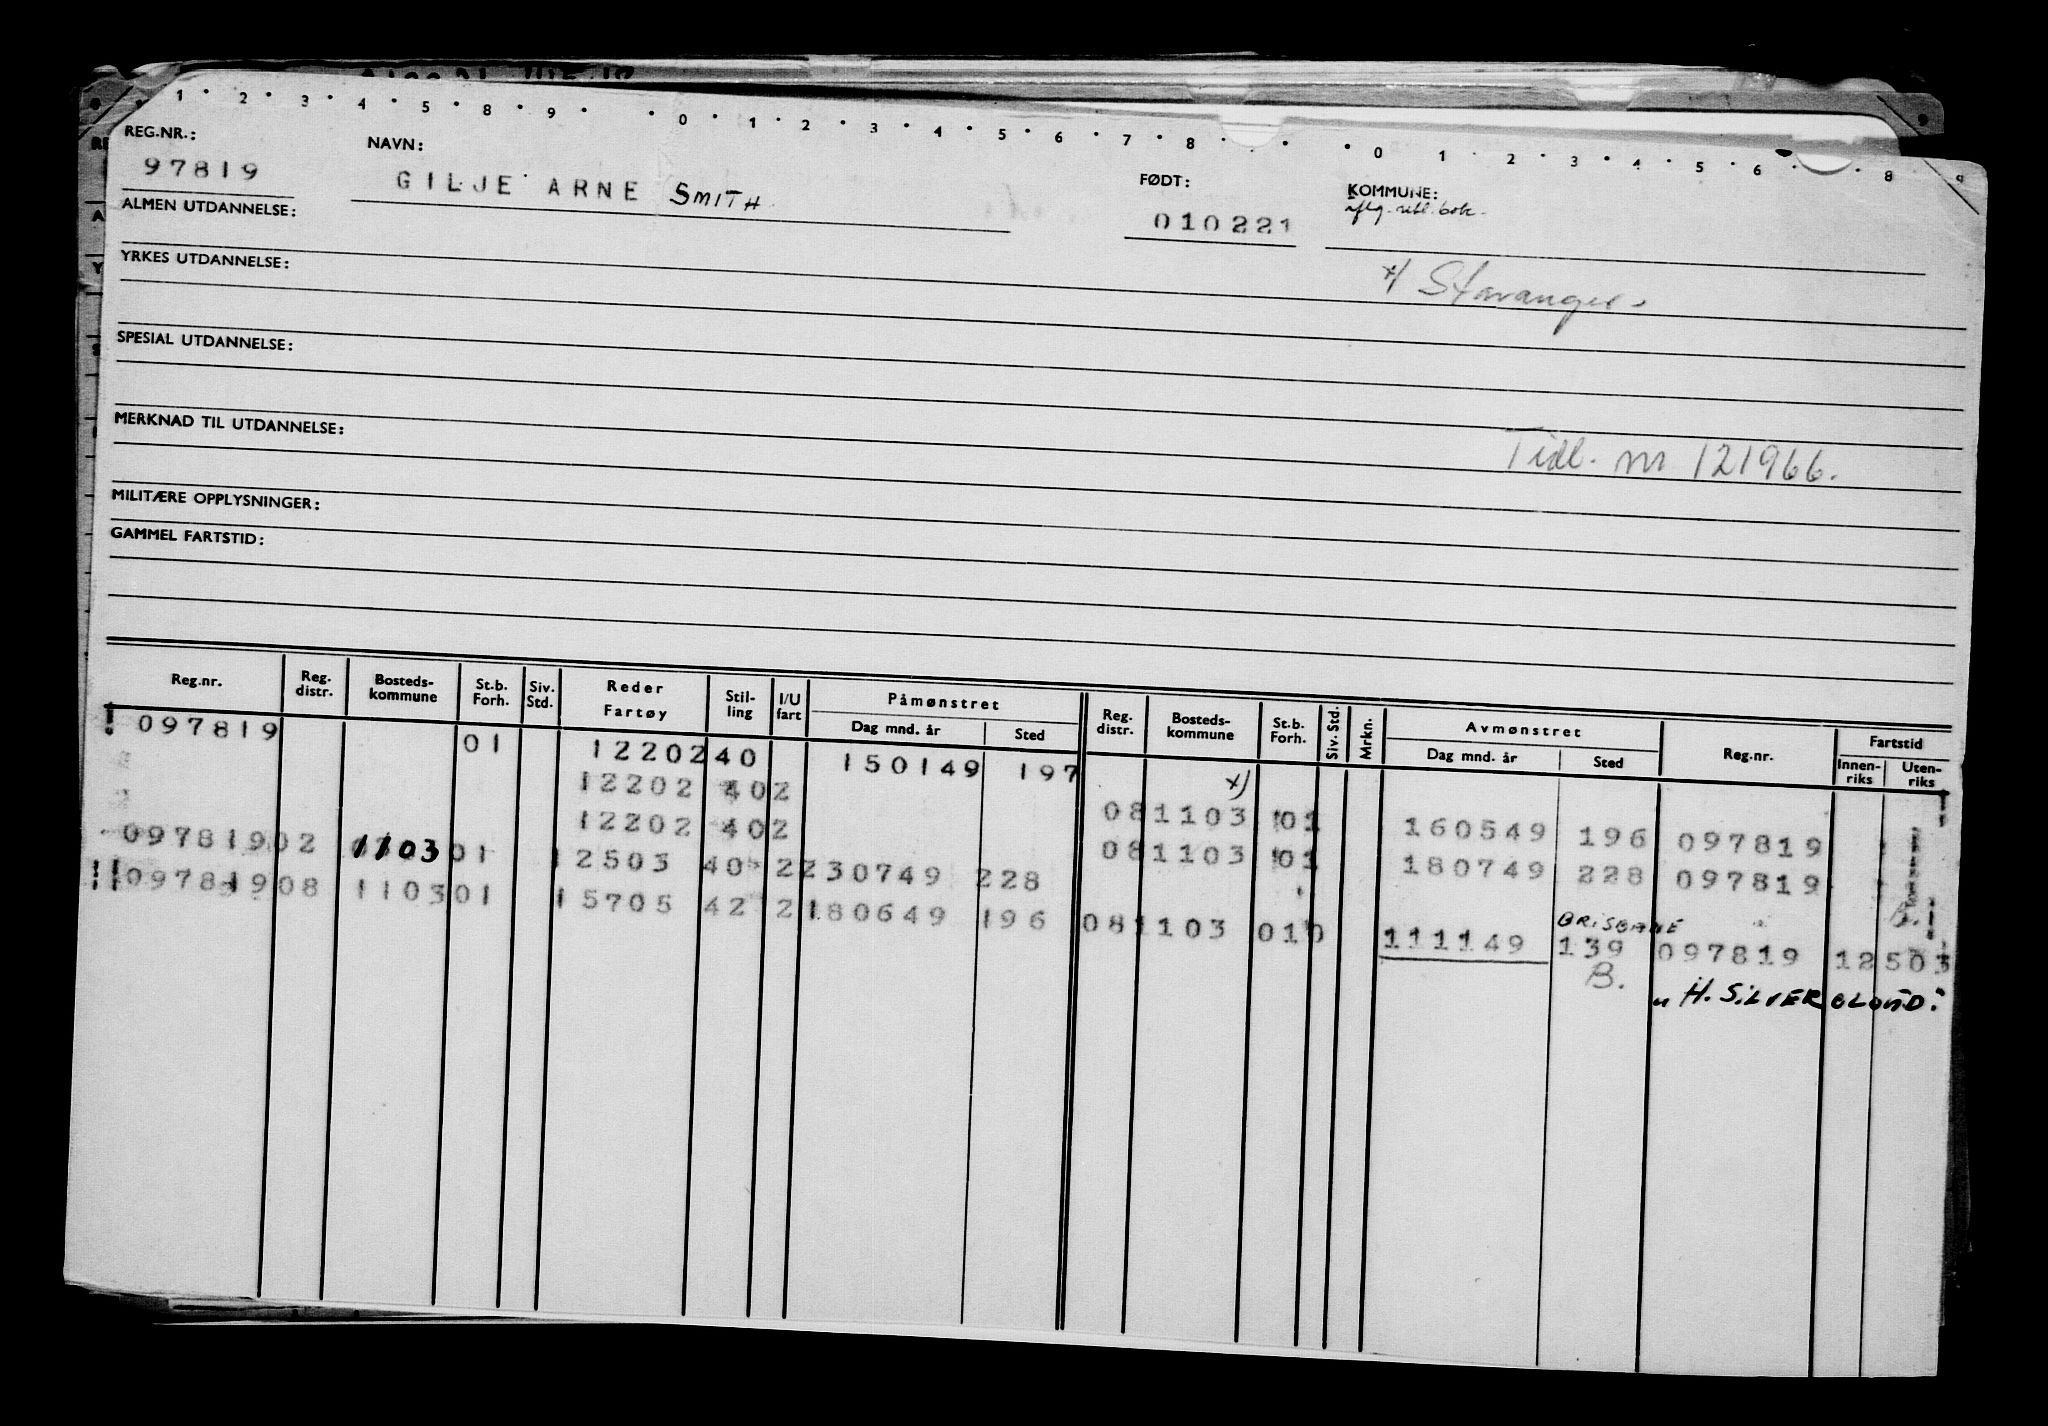 1 2 3 4 5 8 9 0 1 2 3 4 5 6 7 8 0 1 2 3 4 5 6 8 9
REG.NR.: NAVN: FØDT: KOMMUNE:
97819 GILJE ARNE SMITH 010221
ALMEN UTDANNELSE:
YRKES UTDANNELSE:
x/ Stavanger
SPESIAL UTDANNELSE:
MERKNAD TIL UTDANNELSE:
Tidl. nr 121966.
MILITÆRE OPPLYSNINGER:
GAMMEL FARTSTID:
Reg.nr. Reg. distr. Bosteds-kommune St.b. Forh. Siv. Std. Reder Fartøy Stil-ling I/U fart Påmønstret Dag mnd. år Sted Reg. distr. Bosteds-kommune St.b. Forh. Siv. Std. Mrkn. Avmønstret Dag mnd. år Sted Reg.nr. Fartstid Innen-riks Uten-riks
097819 01 12202 40 150149 197
12202 40 2 x) 08 1103 01 160549 196 097819
12202 40 2 08 1103 01 180749 228 097819
097819 02 1103 01 12503 40 2 230749 228 B.
097819 08 1103 01 15705 42 2 180649 196 08 1103 01 0 111149 BRISBANE 139 097819 12503
B.
" H. SILVERCLOUD."